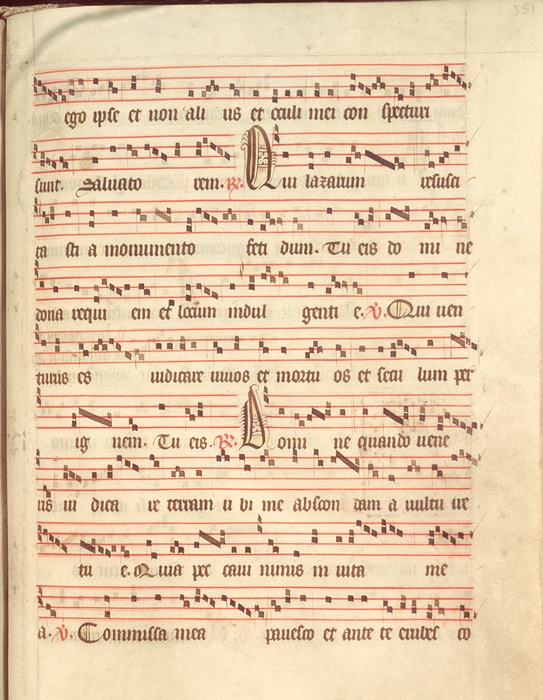 351
ego ipse et non ali us et oculi mei con specturi
sunt. Saluato rem. R. Qui lazarum resusci
ta sti a monumento feti dum. Tu eis do mi ne
dona requi em et locum indul genti e. V. Qui uen
turus es iudicare uiuos et mortu os et secu lum per
ig nem. Tu eis. R. Domi ne quando uene
ris iu dica re terram u bi me abscon dam a uultu ire
tu e. Quia pec caui nimis in uita me
a. V. Commissa mea pauesco et ante te erubes co